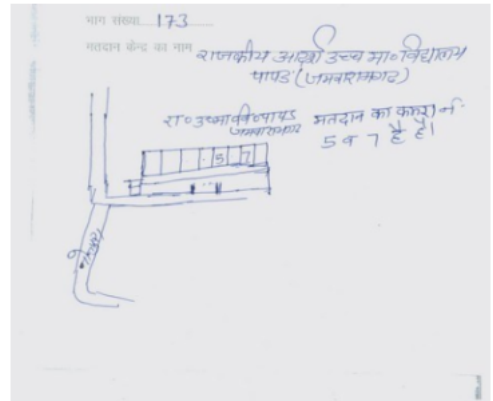 भाग संख्या 173
मतदान केन्द्र का नाम राजकीय आदर्श उच्च मा० विद्यालय
पापड़ (जमवारामगढ)
रा० उ०मा०वि० पापड़ मतदान का कमरा नं.
जमवारामगढ 5 व 7 है है।
5 7